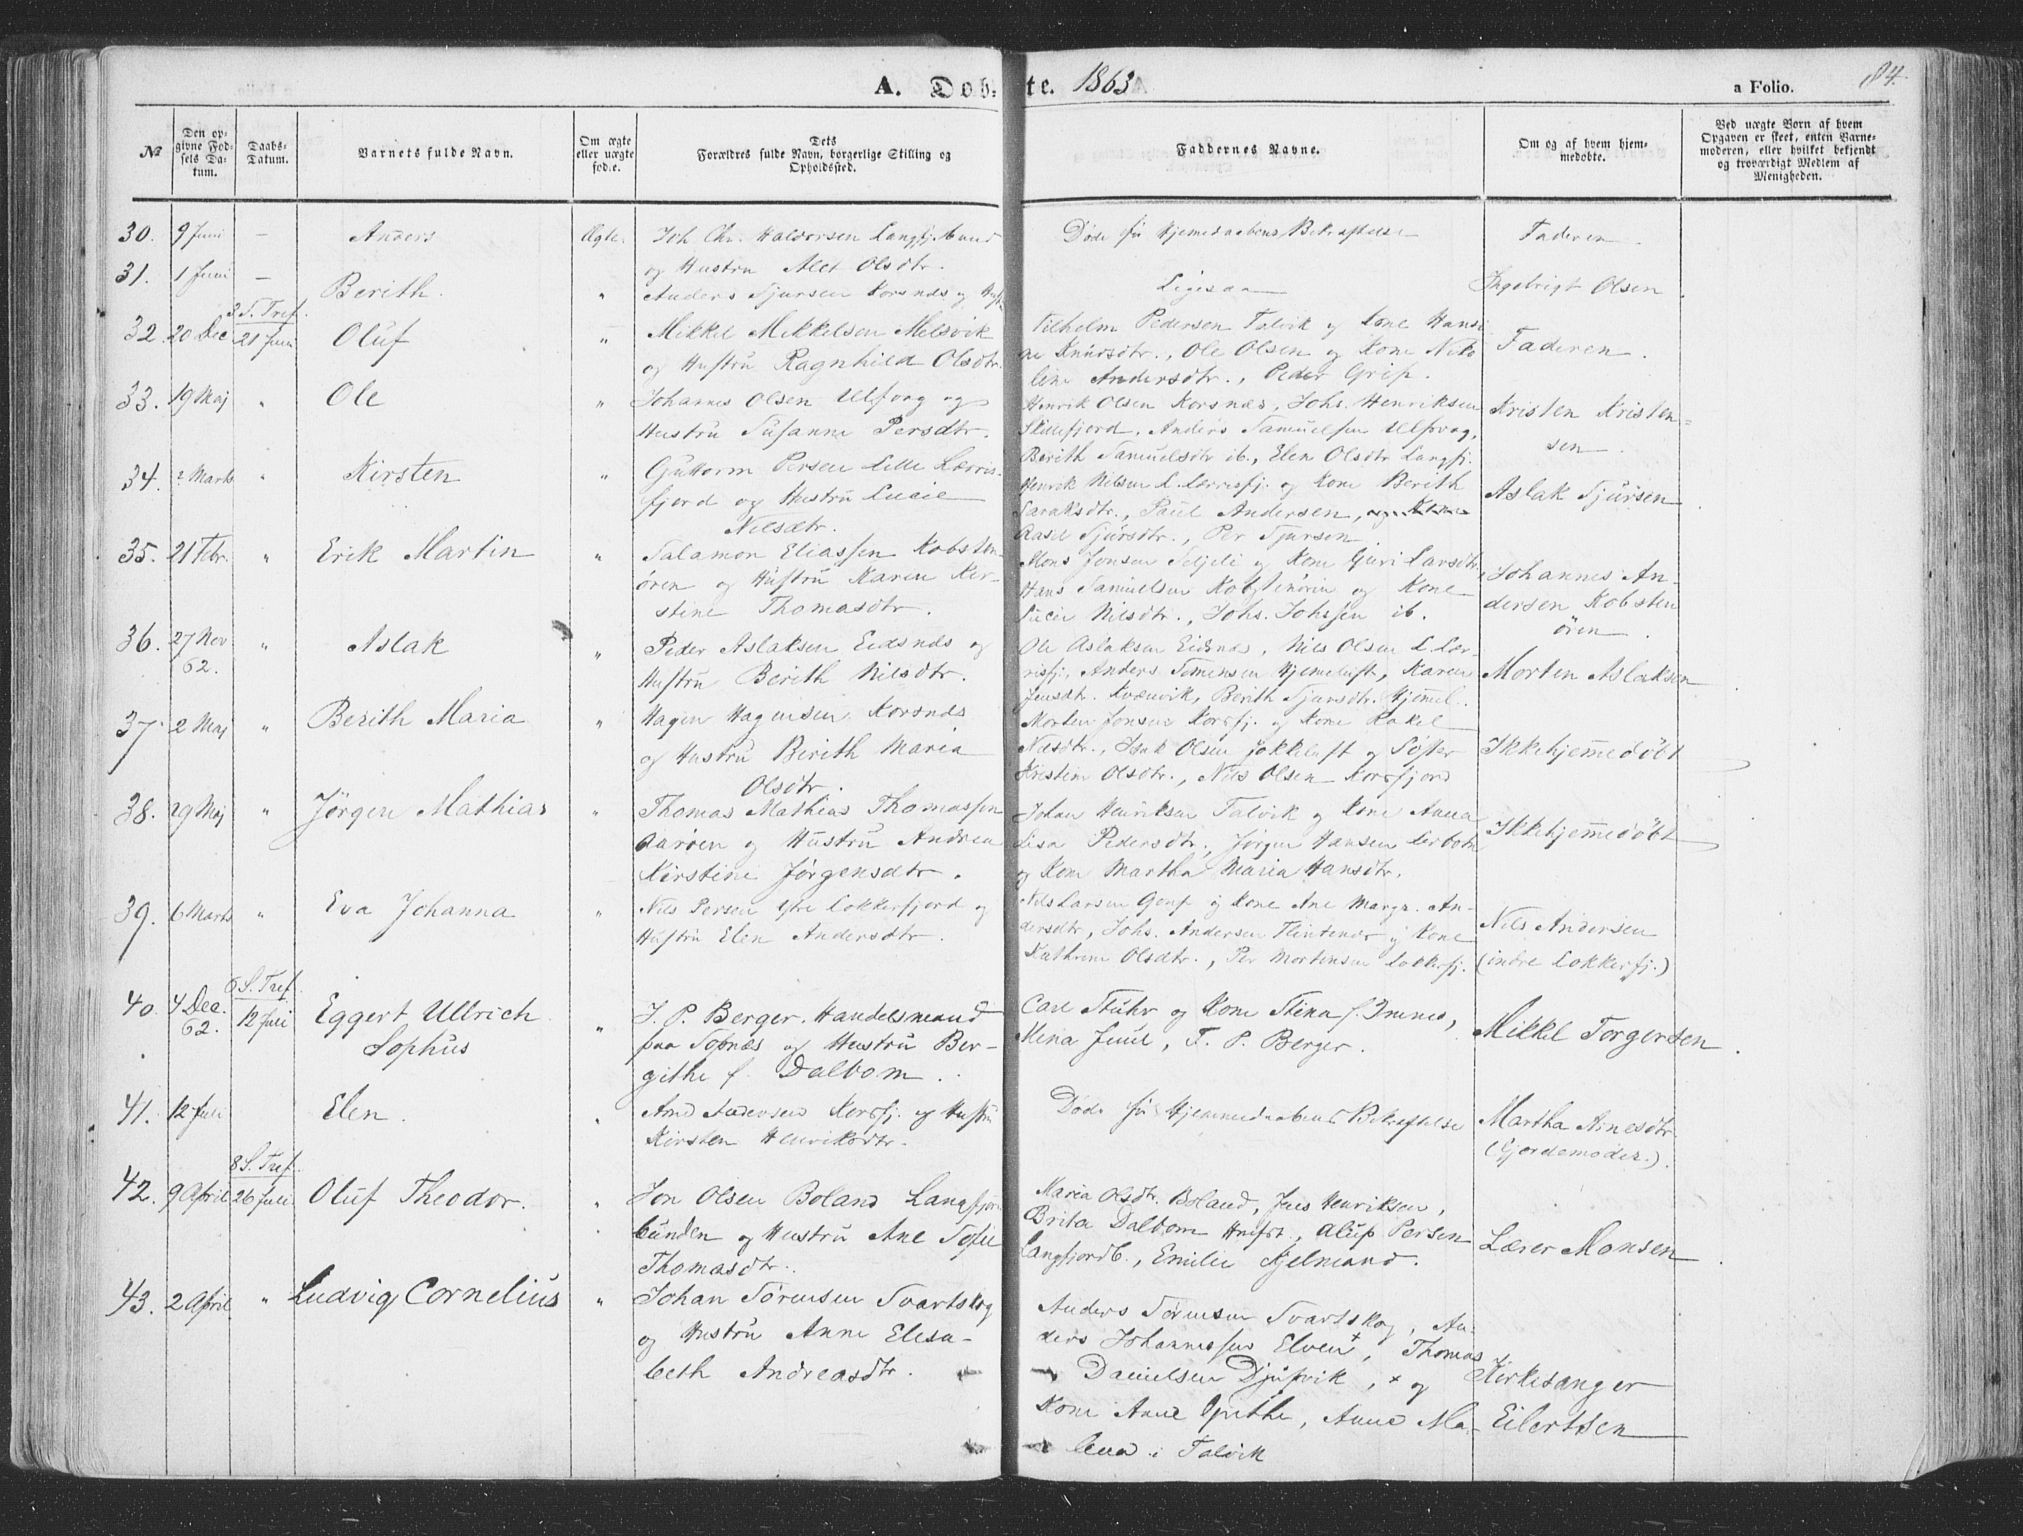 A. Døb-te. 1863
a Folio. 84.
№
Den opgivne Fødsels Datum.
Daabs-Datum.
Barnets fulde Navn.
Om ægte eller uægte født.
Dets Forældres fulde Navn, borgerlige Stilling og Opholdssted.
Faddernes Navne.
Om og af hvem hjemmedøbte.
Ved uægte Børn af hvem Opgaven er skeet, enten Barnemoderen, eller hvilket bekjendt og troværdigt Medlem af Menigheden.
30. 9 Juni — Anders Ægte.
Joh. Chr. Halvorsen Langfj.bund
og Hustru Alet Olsdtr.
Døde før Hjemmedaabens Bekræftelse
Faderen.
31. 1 Juni — Berith. "
Anders Sjursen Korsnæs og Hust
Ligesaa
Ingebrigt Olsen.
3 S. Tref.
32. 20 Dec 21 Juni Oluf "
Mikkel Mikkelsen Melsvik
og Hustru Ragnhild Olsdtr.
Vilhelm Pedersen Talvik og Kone Hansi
ne Knudsdtr., Ole Olsen og Kone Niko
line Andersdtr., Peder Grip.
Faderen.
33. 19 Maj " Ole "
Johannes Olsen Ulfvag og
Hustru Susanne Persdtr.
Henrik Olsen Korsnæs, Johs. Henriksen
Skillefjord, Anders Samuelsen Ulfvag,
Berith Samuelsdtr ib., Elen Olsdtr Langfj.
Kristen Kristen-
sen.
34. 2 Marts " Kirsten "
Guttorm Persen Lille Lerris-
fjord og Hustru Lucie
Nilsdtr.
Henrik Nilsen L. Lerrisfj. og Kone Berith
Saraksdtr., Paul Andersen, og Kone
Aasel Sjursdtr., Per Sjursen.
Aslak Sjursen
35. 21 Febr. " Erik Martin "
Salamon Eliassen Kobsten-
øren og Hustru Karen Ker-
stine Thomasdtr.
Mons Jonsen Seljeli og Kone Guri Larsdtr.
Hans Samuelsen Kobstenøren og Kone
Lucie Nilsdtr., Johs. Johssen ib.
Johannes An-
dersen Kobsten
øren.
36. 27 Nov 62. " Aslak "
Peder Aslaksen Eidsnæs og
Hustru Berith Nilsdtr.
Ole Aslaksen Eidsnæs, Nils Olsen L. Ler-
risfj., Anders Hjemeluft, Karen
Jensdtr. Kvænvik, Berith Sjursdtr. Hjemel.
Morten Aslaksen
37. 2 Maj " Berith Maria "
Hagen Hagensen Korsnæs
og Hustru Berith Maria
Olsdtr.
Morten Jonsen Korsfj. og Kone Rakel
Nilsdtr., Isak Olsen Jokkeluft og Søster
Kristine Olsdtr., Nils Olsen Korsfjord
Ikkehjemmedøbt
38. 29 Maj " Jørgen Mathias "
Thomas Mathias Thomassen
Aarøen og Hustru Andrea
Kirstine Jørgensdtr.
Johan Henriksen Talvik og Kone Anna
Lisa Pedersdtr., Jørgen Hansen Lerbotn
og Kone Martha Maria Hansdtr.
Ikkehjemmedøbt
39. 6 Marts " Eva Johanna "
Nils Persen Ytre Lokkerfjord og
Hustru Elen Andersdtr.
Nils Larsen og Kone Ane Margr. An-
dersdtr, Johs. Andersen Flintenæs og Kone
Kathrine Olsdtr., Per Mortensen Lokkerfj.
Nils Andersen
(indre Lokkerfj.)
6 S. Tref.
40. 4 Dec. 62. 12 Juli Eggert Ullrich
Sophus "
J. P. Berger. Handelsmand
paa Sopnæs og Hustru Ber-
githe f. Dalbom.
Carl Stuhr og Kone Stina f. Irmes,
Mina Juul, F. P. Berger.
Mikkel Torgersen.
41. 12 Juli Elen. "
Arne Andersen Korsfj. og Hustru
Kirsten Henriksdtr.
Døde før Hjemmedaabens Bekræftelse
Martha Arnesdtr
(Gjordemoder.).
8 S. Tref.
42. 9 April 26 Juli Oluf Theodor. "
Jon Olsen Boland Langfjord
bunden og Hustru Ane Sofie
Thomasdtr.
Maria Olsdtr. Boland, Jens Henriksen,
Brita Dalbom, Alup Persen
Langfjordb., Emilie Kjelmand.
Lærer Monsen
43. 2 April " Ludvig Cornelius "
Johan Sørensen Svartskog
og Hustru Anne Elesa-
beth Andreasdtr.
Anders Sørensen Svartskog, An-
ders Johannessen Elven +, Thomas
Danielsen Djupvik, + og
Kone Anne Grethe, Anne Ma-
lena i Talvik
Kirkesanger
Eilertsen